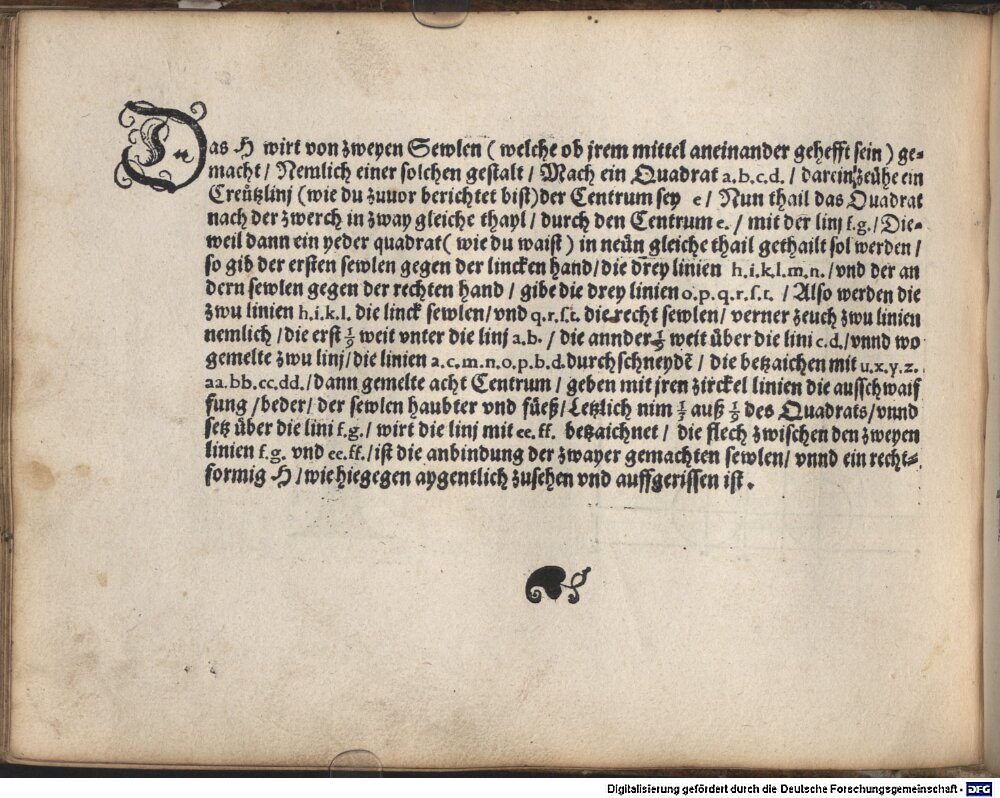 Das H wirt von zweyen Sewlen ( welche ob jrem mittel aneinander gehefft sein ) ge⸗
macht / Nemlich einer solchen gestalt / Mach ein Quadrat a.b.c.d. / darein zeühe ein
Creützlinj (wie du zuuor berichtet bist)der Centrum sey e / Nun thail das Quadrat
nach der zwerch in zway gleiche thayl / durch den Centrum e. / mit der linj f.g. / Die⸗
weil dann ein yeder quadrat( wie du waist ) in neün gleiche thail gethailt sol werden /
so gib der ersten sewlen gegen der lincken hand/die drey linien h.i.k.l.m.n. /vnd der an
dern sewlen gegen der rechten hand / gibe die drey linien o.p.q.r.s.t. / Also werden die
zwu linien h.i.k.l. die linck sewlen/vnd q.r.s.t. die recht sewlen/ verner zeuch zwu linien
nemlich /die erst 1/9 weit vnter die linj a.b. / die annder 1/9 weit über die lini c.d./vnnd wo
gemelte zwu linj/die linien a.c.m.n.o.p.b.d.durchschneydē / die betzaichen mit u.x.y.z.
aa.bb.cc.dd./dann gemelte acht Centrum / geben mit jren zirckel linien die ausschwaif
fung /beder/ der sewlen haubter vnd füeß/Letzlich nim 1/3 auß 1/9 des Quadrats/vnnd
setz über die lini f.g./ wirt die linj mit ee.ff. betzaichnet / die flech zwischen den zweyen
linien f.g. vnd ee.ff./ist die anbindung der zwayer gemachten sewlen/ vnnd ein recht⸗
formig H /wie hiegegen aygentlich zusehen vnd auffgerissen ist .
Digitalisierung gefördert durch die Deutsche Forschungsgemeinschaft - DFG